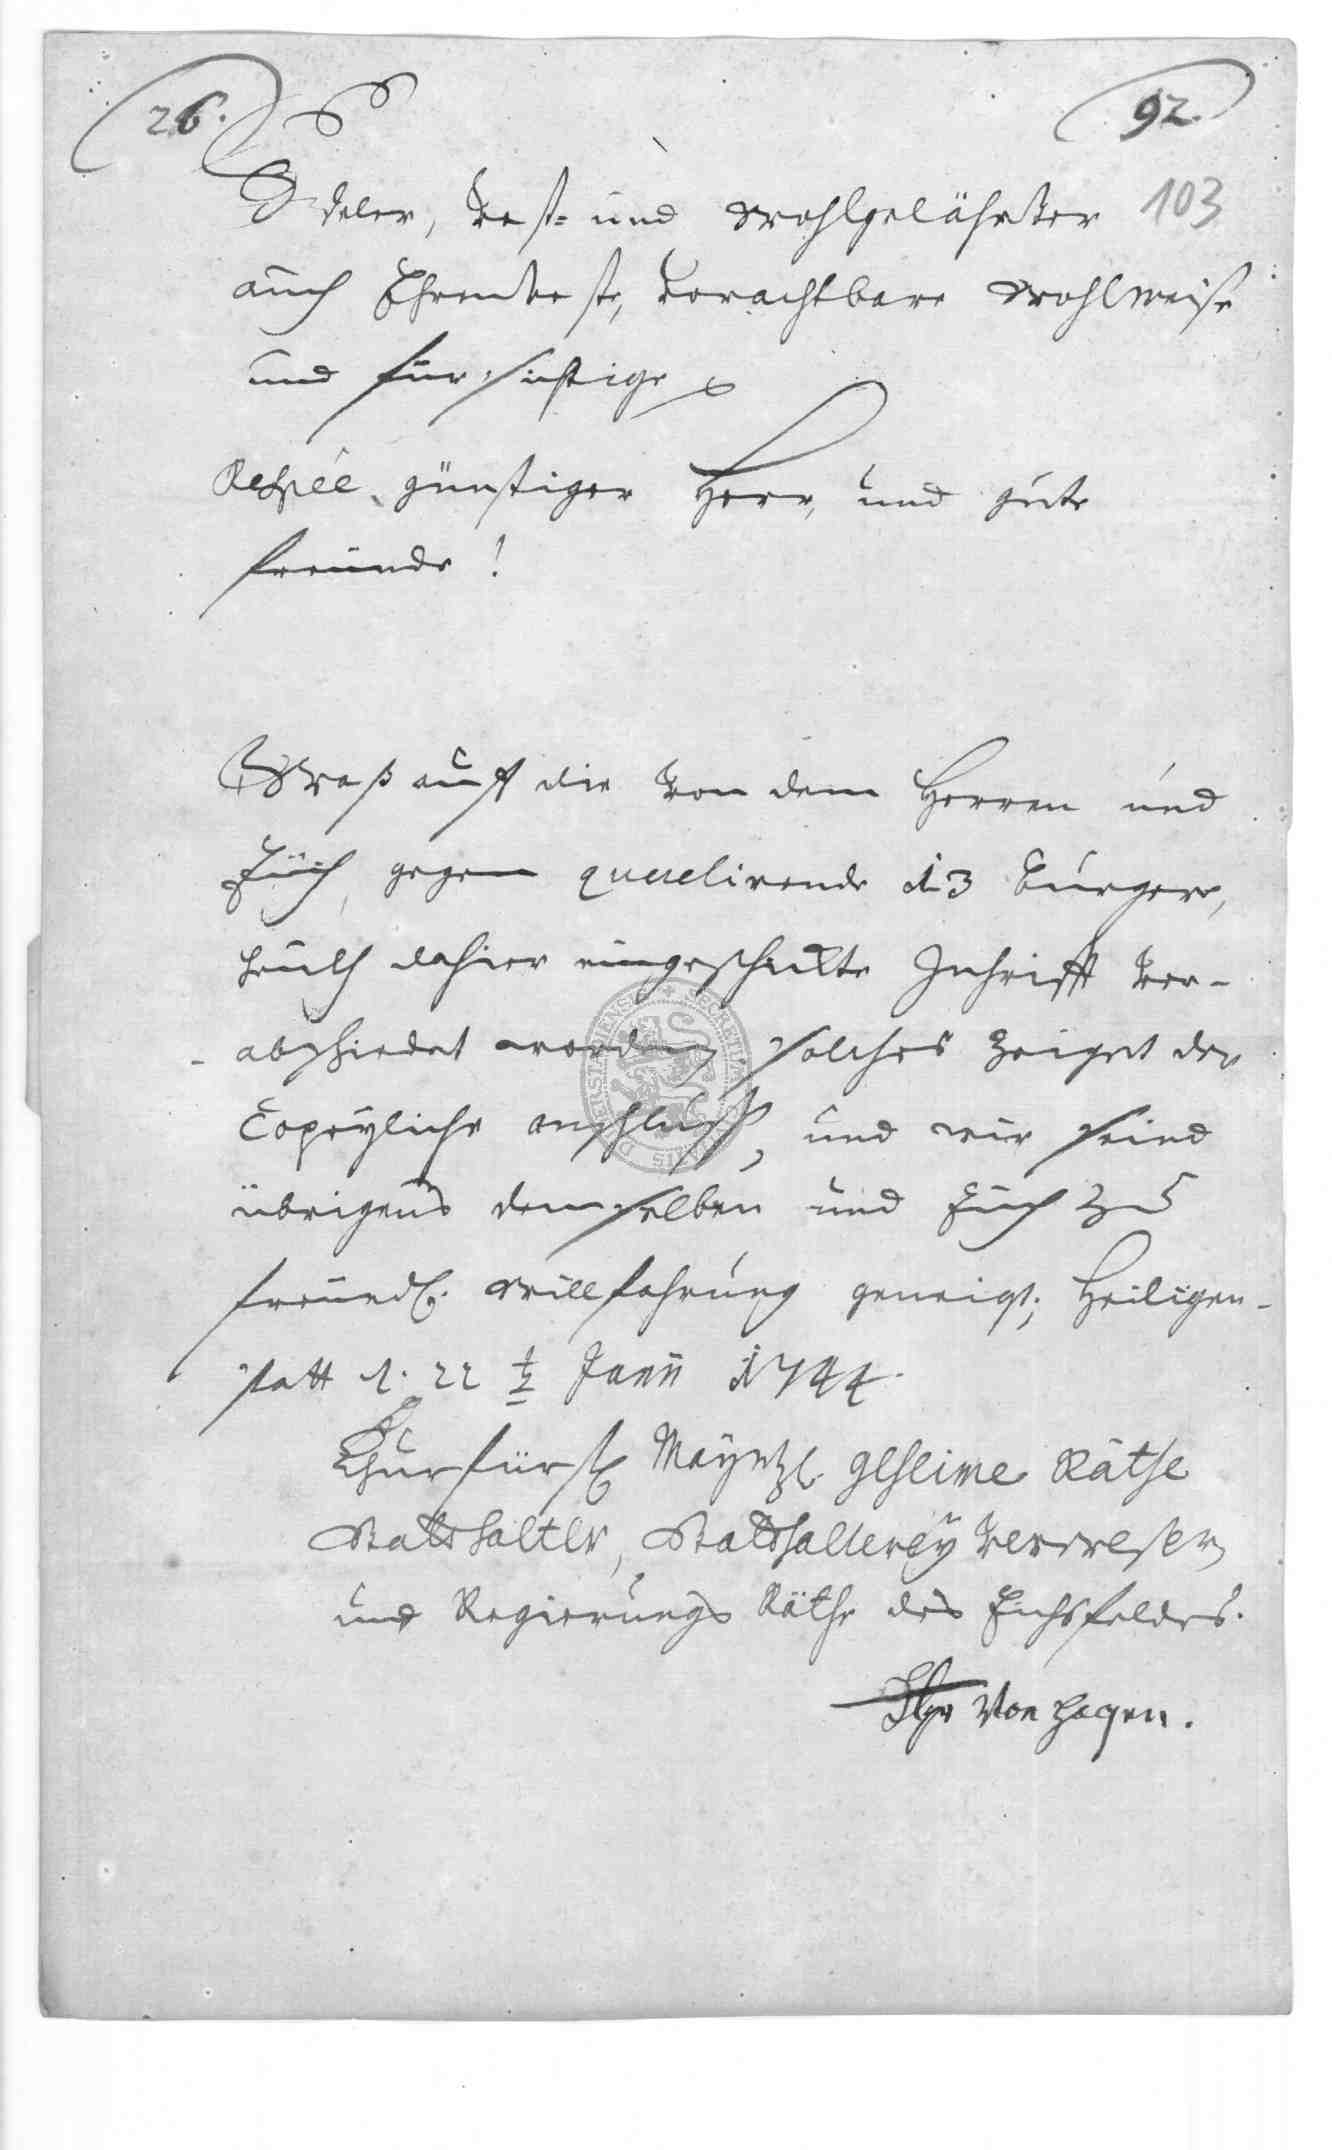 26.
92.
103
Edeler, Vest- und Wohlgelährter
auch Ehrenveste, Vorachtbare Wohlweise
und fürsichtige
günstiger Herr, und gute
freunde!
Waß auff die von dem Herren und
Euch, gegen querelirende 13 Bürgere,
dahier eingeschickte Inhrifft ver-
abschiedet worden, solches zeiget der
Copeyliche anschluß, und wir seind
übrigens demselben und Euch zu
freundl. Willfahrung geneigt; Heiligen-
statt d. 22 Junii 1744.
Churfürstl Mayntzl. geheime Räthe
Statthalter, Statthalterey Verweser
und Regierungs Räthe des Eichsfeldes.
Von Hagen.